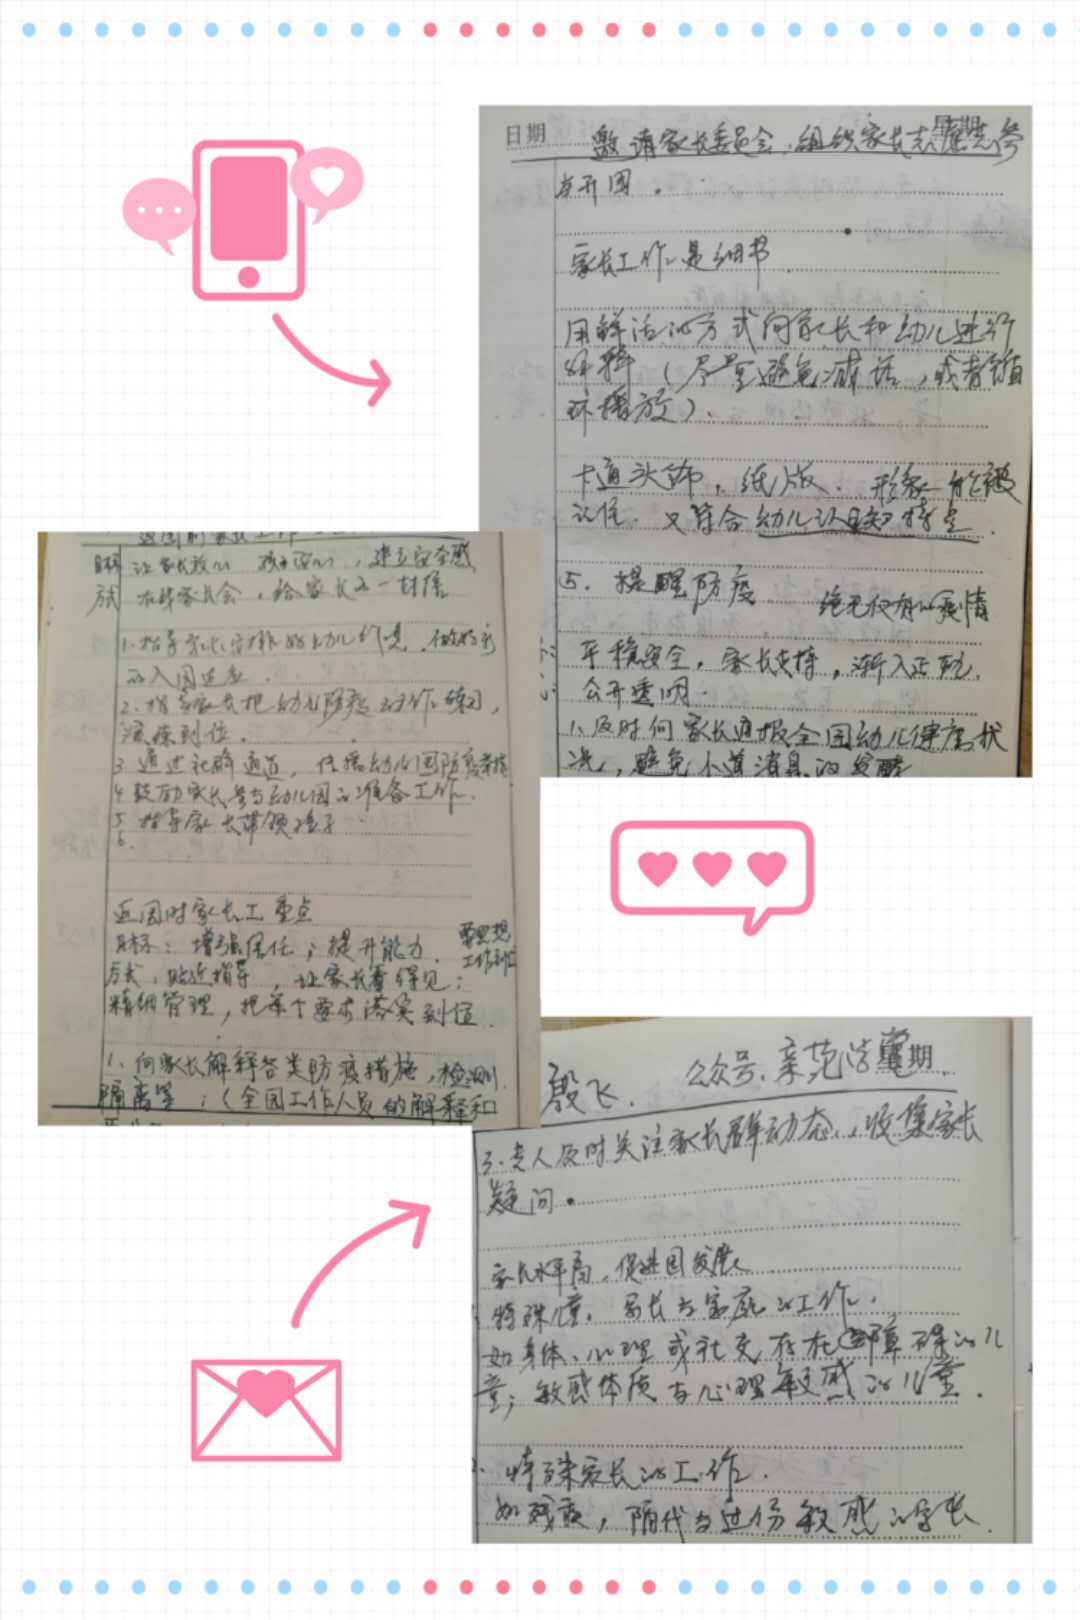 日期
星期
邀请家长委员会，组织家长志愿先参
与开园。
家长工作是细节
用鲜活的方式向家长和幼儿进行
解释（尽量避免减话，或者循
环播放）.
卡通头饰，纸版. 形象能被
记住. 又符合幼儿认知特点.
5. 提醒防疫 绝无仅有的疫情
平稳安全，家长支持，渐入正轨.
公开透明.
1. 及时向家长通报全园幼儿健康状
况，避免小道消息的发酵
返园前家长工作
目标 让家长放心 孩子开心，建立安全感
方式 召开家长会，给家长的一封信
1. 指导家长安排好幼儿作息，做好
的入园适应
2. 指导家长把幼儿防疫动作练习，
演练到位.
3. 通过社群通道，传播幼儿园防疫举措
4 鼓励家长参与幼儿园的准备工作.
5 指导家长带领孩子
6.
返园时家长工重点
目标：增强信任；提升能力.
要思想
工作到位
方式，贴近指导，让家长看得见；
精细管理，把每个要求落实到位.
1. 向家长解释各类防疫措施，检测，
隔离等；（全园工作人员的解释和
星期
殷飞. 公众号.
3. 专人及时关注家长群动态，收集家长
疑问.
家长水平高，促进园发展
特殊儿童，家长与家庭的工作.
如身体、心理或社交存在障碍的儿
童；敏感体质与心理敏感的儿童.
特殊家长的工作.
如残疾，隔代与过份敏感的家长.